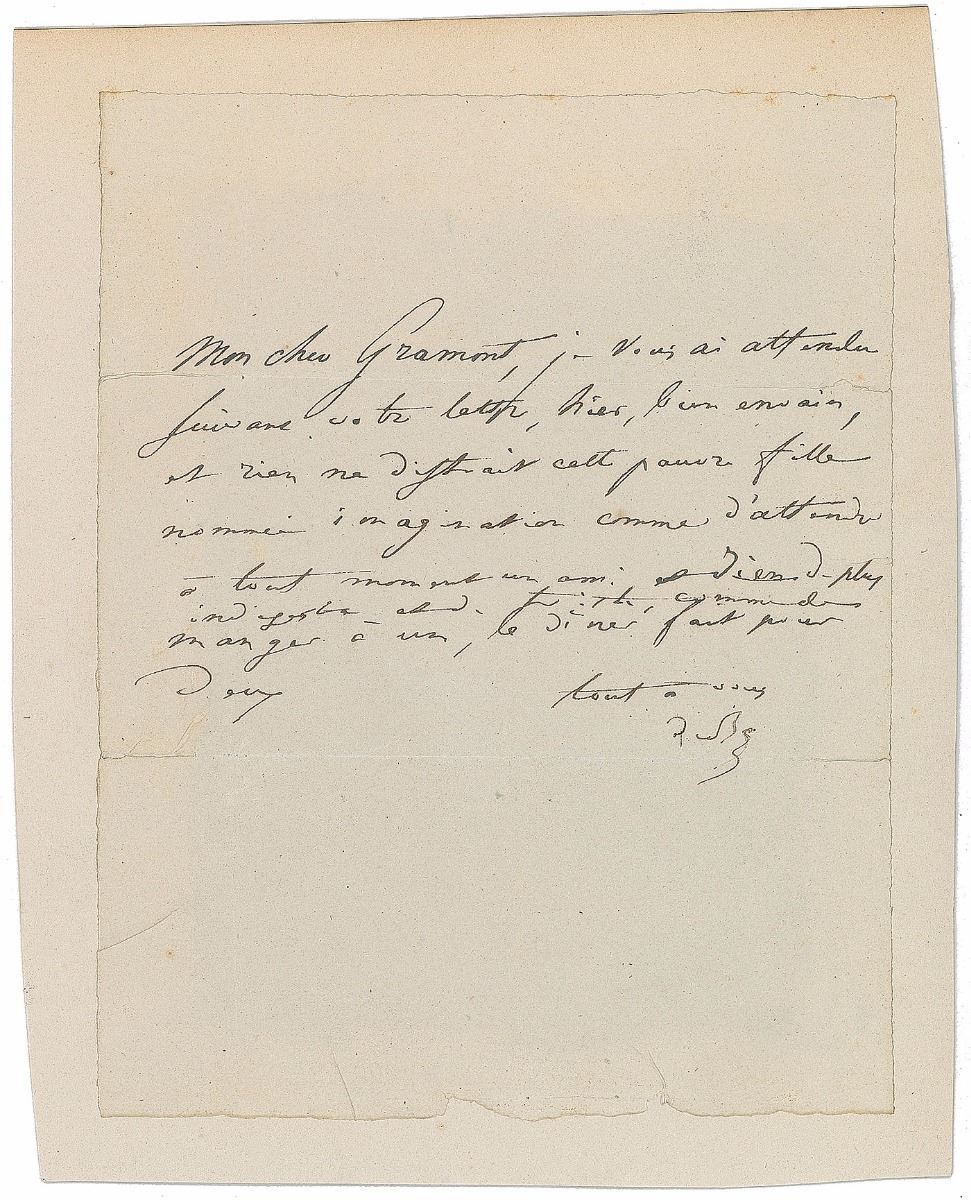 Mon cher Gramont, je vous ai attendu
suivant votre lettre, hier, bien en vain,
et rien ne distrait cette pauvre fille
nommée imagination comme d'attendre
à tout moment un ami, et rien de plus
indigeste et de triste, comme de
manger à un, le dîner fait pour
Deux
tout à vous
de Bc